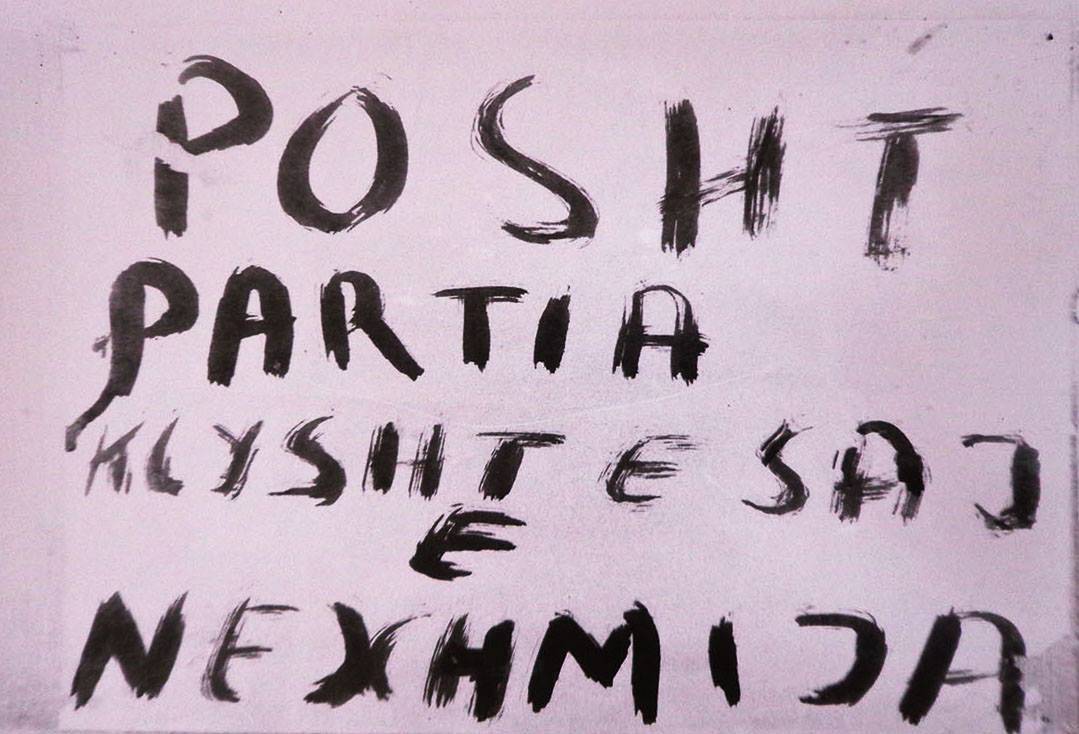 POSHT
PARTIA
KLYSHT E SAJ
E
NEXHMIJA